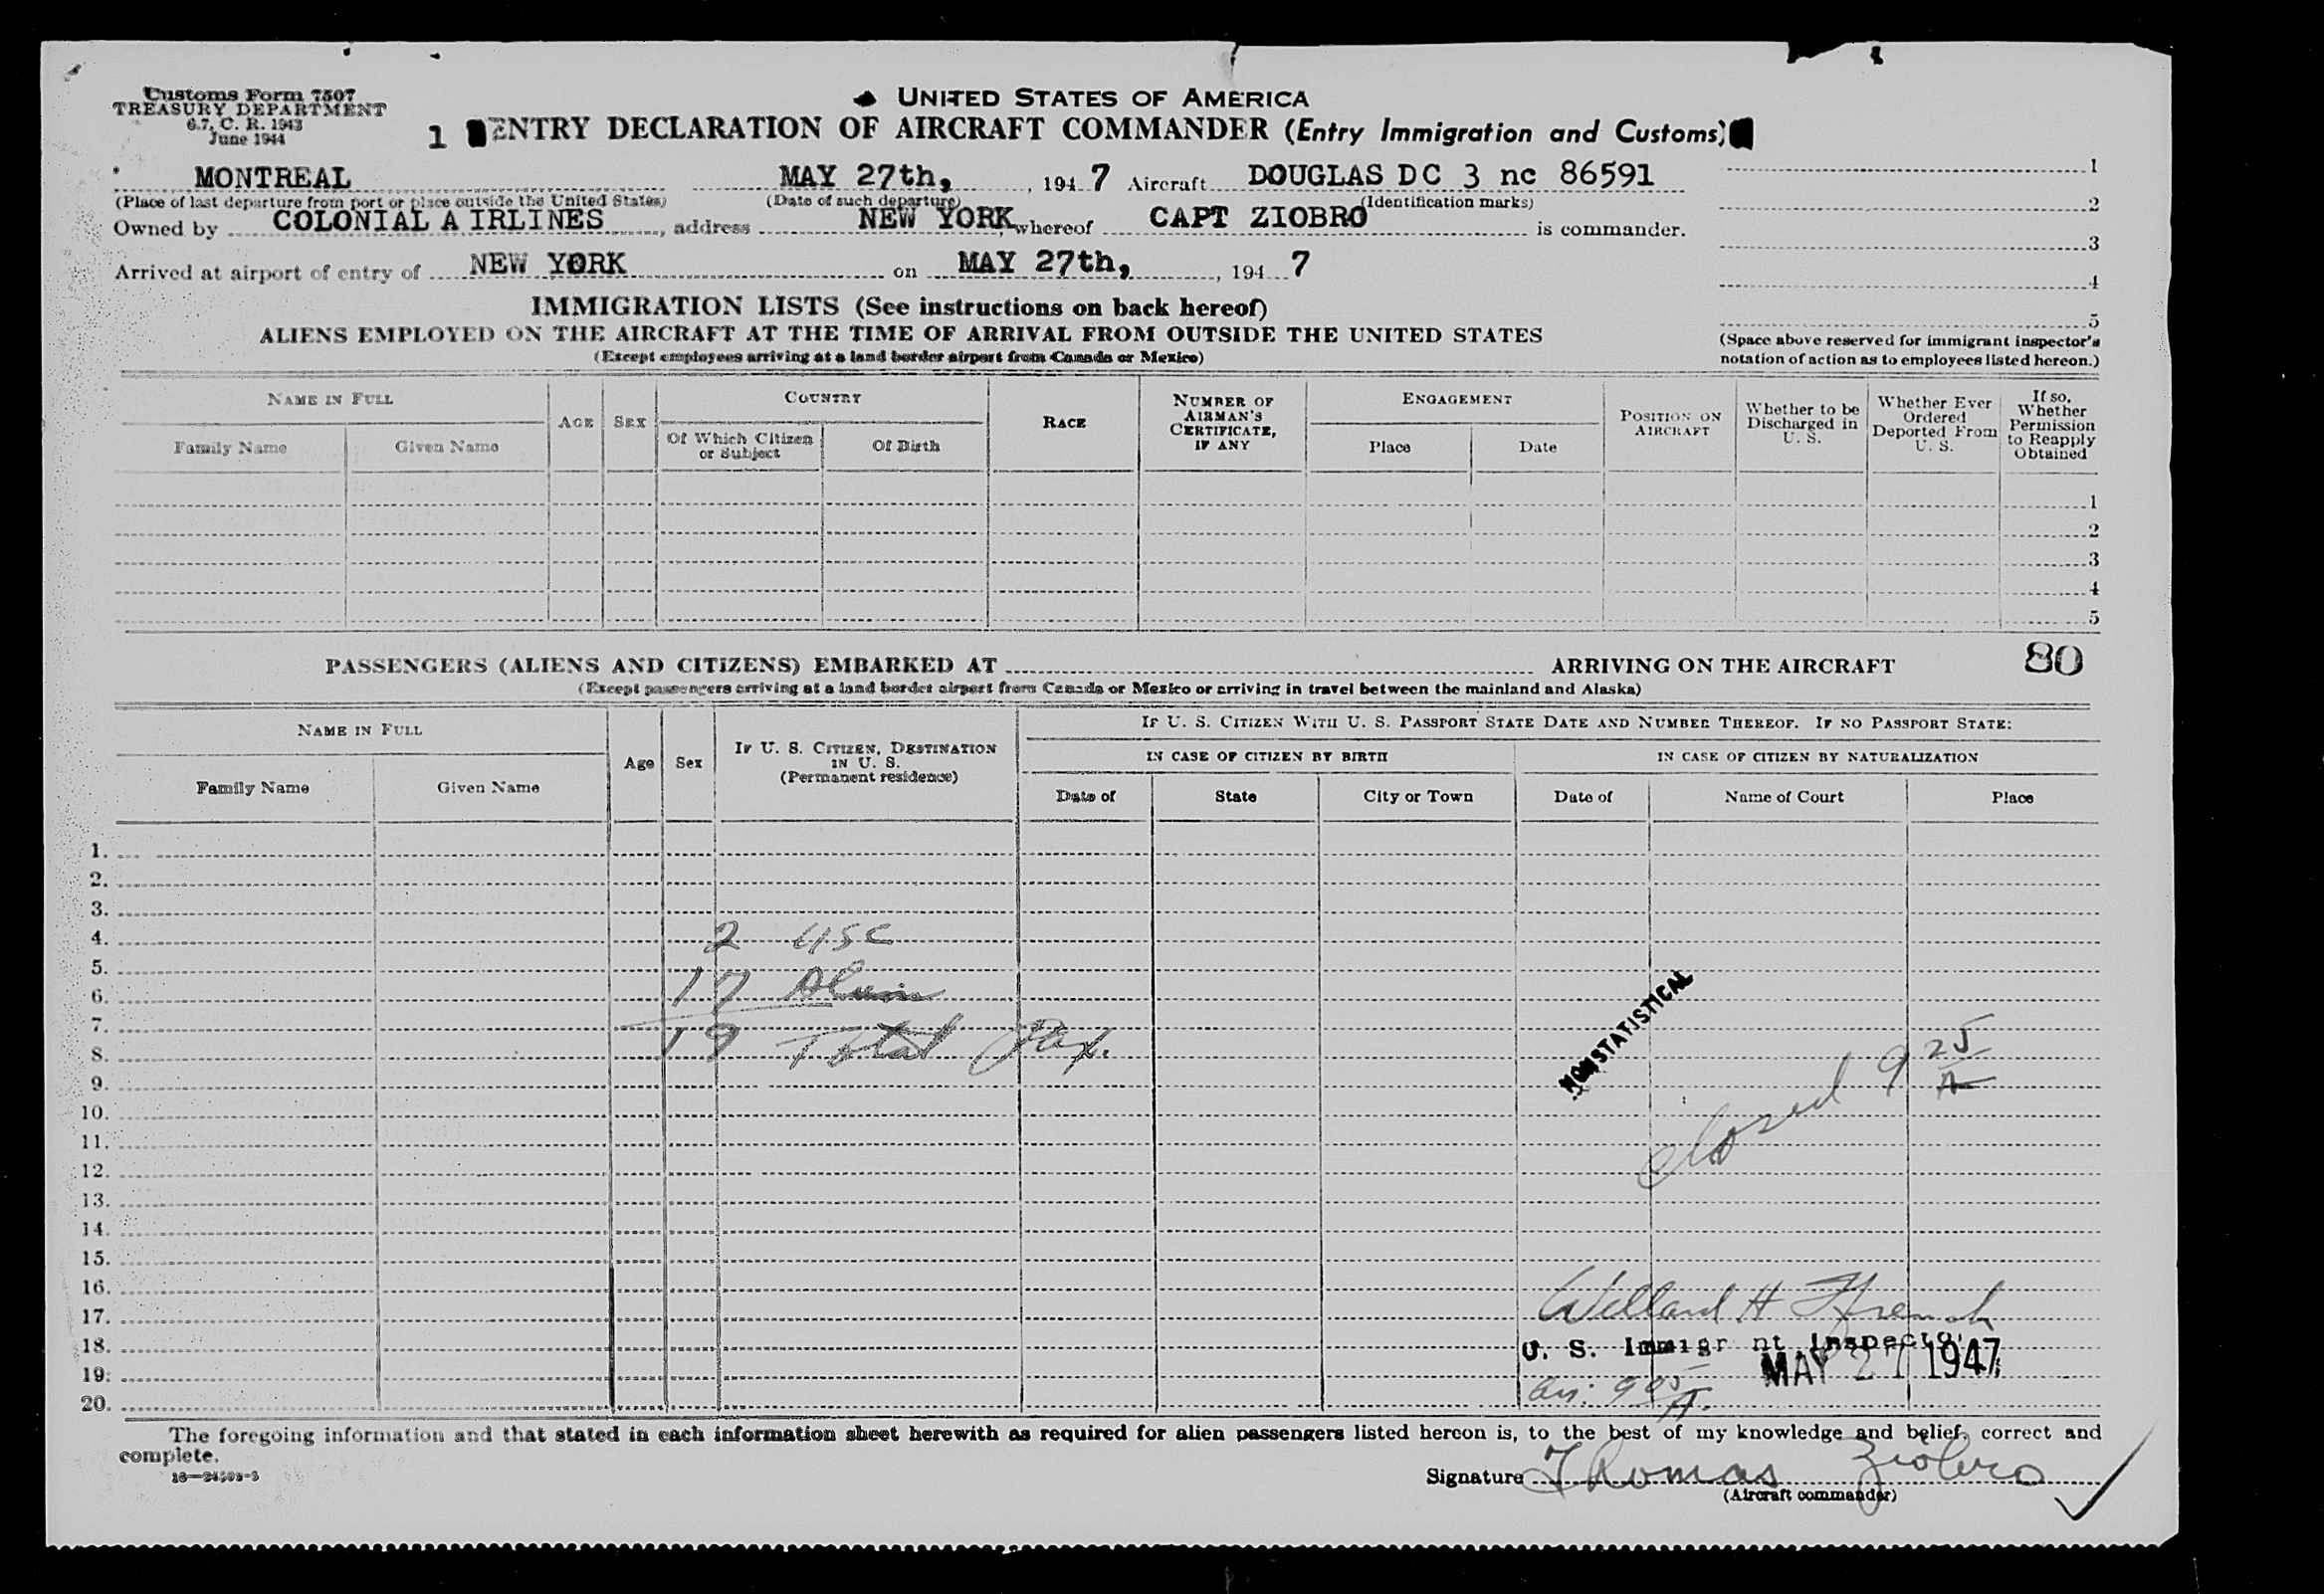 Customs Form 7507
TREASURY DEPARTMENT
6.7, C. R. 1943
June 1944
UNITED STATES OF AMERICA
1 ENTRY DECLARATION OF AIRCRAFT COMMANDER (Entry Immigration and Customs)
MONTREAL MAY 27th, , 194 7 Aircraft DOUGLAS DC 3 nc 86591
(Place of last departure from port or place outside the United States) (Date of such departure) (Identification marks)
Owned by COLONIAL A IRLINES, address NEW YORK, whereof CAPT ZIOBRO is commander.
Arrived at airport of entry of NEW YORK on MAY 27th, , 194 7
1
2
3
4
5
(Space above reserved for immigrant inspector's
notation of action as to employees listed hereon.)
IMMIGRATION LISTS (See instructions on back hereof)
ALIENS EMPLOYED ON THE AIRCRAFT AT THE TIME OF ARRIVAL FROM OUTSIDE THE UNITED STATES
(Except employees arriving at a land border airport from Canada or Mexico)
NAME IN FULL
Family Name
Given Name
AGE
SEX
COUNTRY
Of Which Citizen
or Subject
Of Birth
RACE
NUMBER OF
AIRMAN'S
CERTIFICATE,
IF ANY
ENGAGEMENT
Place
Date
POSITION ON
AIRCRAFT
Whether to be
Discharged in
U. S.
Whether Ever
Ordered
Deported From
U. S.
If so,
Whether
Permission
to Reapply
Obtained
1
2
3
4
5
PASSENGERS (ALIENS AND CITIZENS) EMBARKED AT ARRIVING ON THE AIRCRAFT 80
(Except passengers arriving at a land border airport from Canada or Mexico or arriving in travel between the mainland and Alaska)
NAME IN FULL
Family Name
Given Name
Age
Sex
IF U. S. CITIZEN, DESTINATION
IN U. S.
(Permanent residence)
IF U. S. CITIZEN WITH U. S. PASSPORT STATE DATE AND NUMBER THEREOF. IF NO PASSPORT STATE:
IN CASE OF CITIZEN BY BIRTH
IN CASE OF CITIZEN BY NATURALIZATION
Date of
State
City or Town
Date of
Name of Court
Place
1.
2.
3.
4. 2 USC
5.
6. 17 Alien
7.
8. 19 Total Pax.
NONSTATISTICAL
closed 9 25 A
9.
10.
11.
12.
13.
14.
15.
16.
17. Willard H French
18. U. S. Immigr nt Inspecto
19. MAY 27 1947
20. arr: 9 05 A.
The foregoing information and that stated in each information sheet herewith as required for alien passengers listed hereon is, to the best of my knowledge and belief, correct and
complete.
Signature Thomas Ziobro
(Aircraft commander)